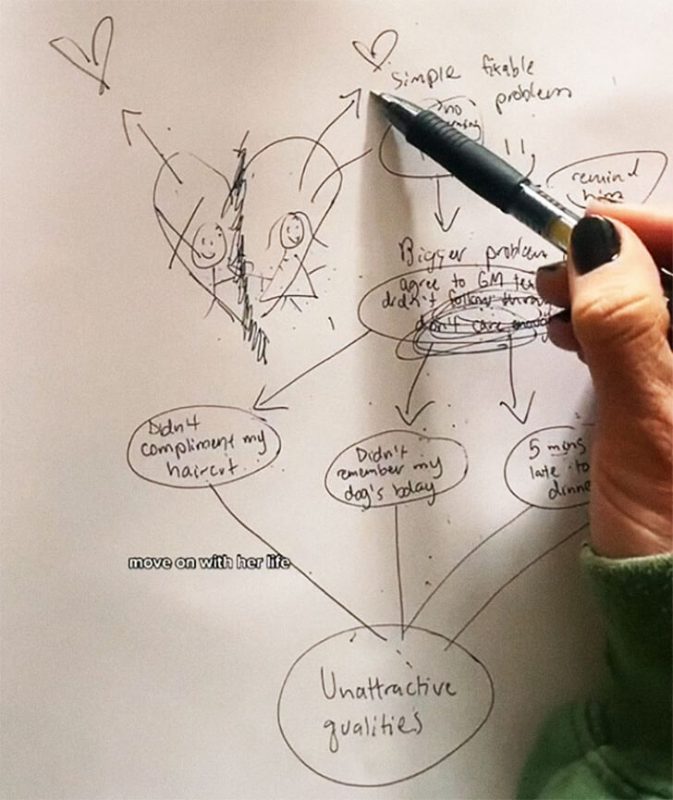 Simple fixable
problem
no
remind
him
Bigger problem
agree to GM
didn't follow
don't care
Didn't
compliment my
haircut
Didn't
remember my
dog's bday
5 mins
late to
dinne
move on with her life
Unattractive
qualities